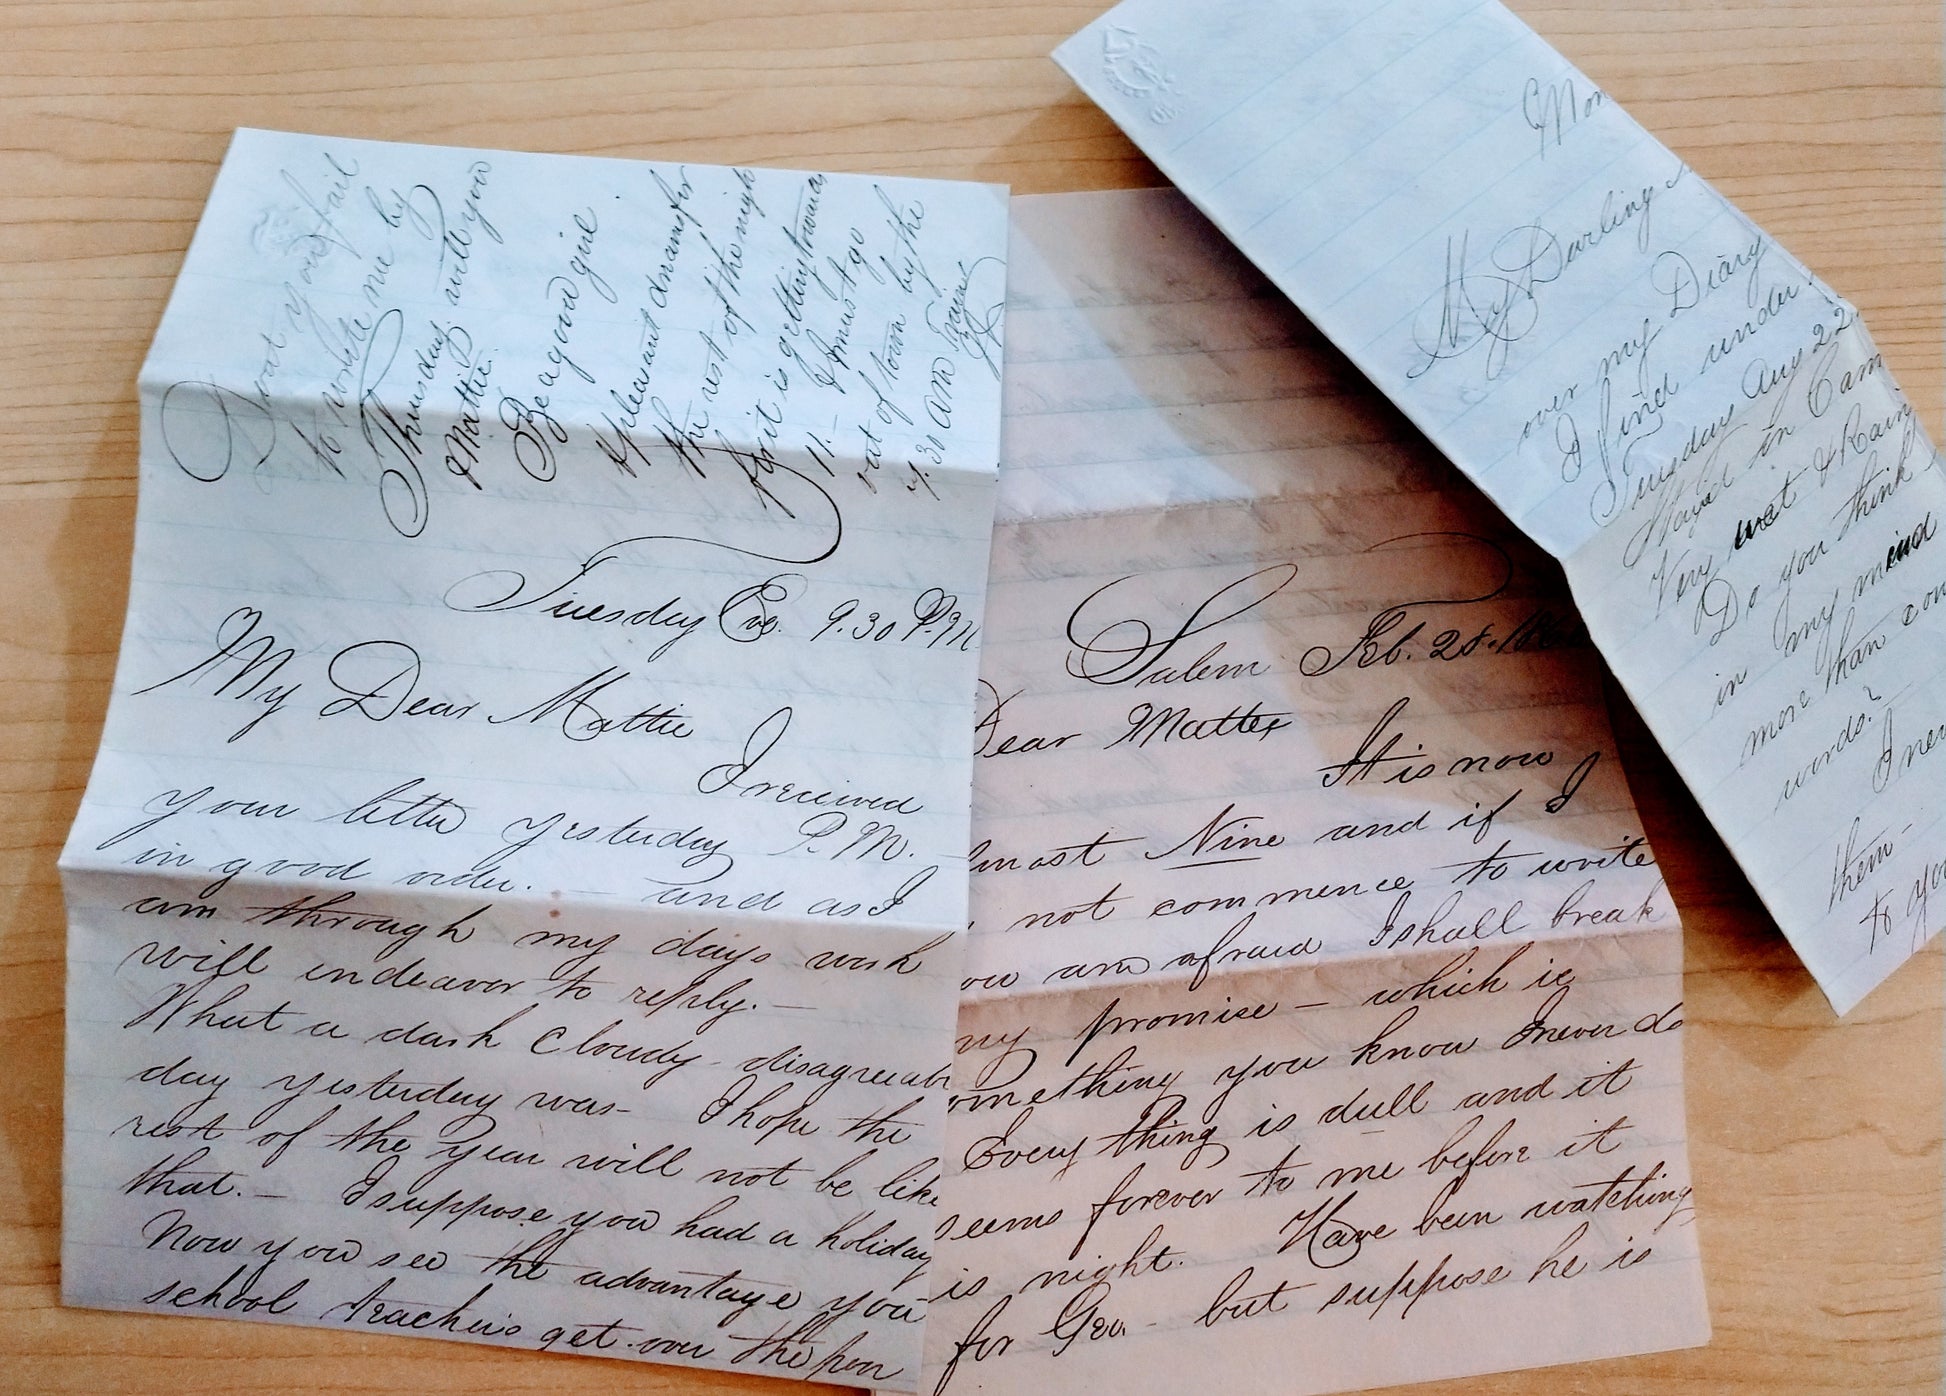 Dont you fail
to write me by
Thursday will you
Mattie.
Be a good girl.
A pleasant dream for
the rest of the night
for it is getting towards
11.- I must go
out of town by the
7.30 AM Train
Tuesday Eve. 9.30 P.M.
My Dear Mattie
I received
your letter yesterday P.M.
in good order. – and as I
am through my days work
will endeavor to reply. –
What a dark cloudy - disagreeab
day yesterday was - I hope the
rest of the year will not be like
that. – I suppose you had a holiday
Now you see the advantage you
school teachers get over the poor
Salem Feb. 28. 186
Dear Mattie
It is now
lmost Nine and if I
not commence to write
ou am afraid I shall break
my promise – which is
omething you know I never do
Every thing is dull and it
seems forever to me before it
is night. Have been watching
for Geo. - but suppose he is
Mon
My Darling
over my Diary
I find under
Tuesday Aug 22
Stayed in Cam
Very wet & Rain
Do you think
in my mind
more than con
words?
I nev
them-
to yo